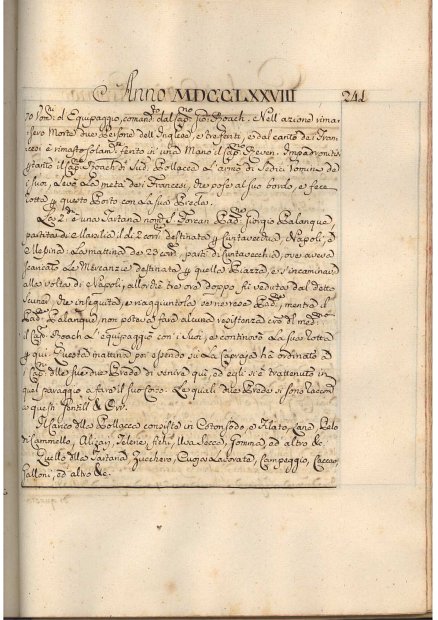 Anno MDCCLXXVIII 241
70 Vom.ni d'Equipaggio, comand.to dal Cap.no Roach. Nell'azione rima-
sero Morte due Persone dell'Inglese, e tre ferite, e dal canto de' Fran-
cesi è rimasto solam.te ferito in una Mano il Cap. Impadronito
il Cap. Roach di Sud.a Pollacca l'armò di Sedici Uomini de
i suoi, levò La metà de' Francesi, che pose al suo bordo, e fece
rotta p questo Porto con La sua Preda.
La 2.da è una Tartana nom.ta Padn. Giorgio Balanque
partita di Marsilia il dì 2 corr. destinata p Civitavecchia, Napoli, e
Messina. La mattina de 29 corr. partì di Civitavecchia, ove aveva
scaricato Le Mercanzie destinate p quella Piazza, e s'incaminava
alla volta di Napoli, allorchè tre ore doppo, fù veduta dal detto
che inseguita, e raggiuntola se ne rese Pad.ne, mentre il
Pad. Balanque, non poteva fare alcuna resistenza
il Cap. Roach L'equipaggiò con i suoi, e continovò La sua rotta
p qui. Questa mattina poi essendo su La Capraja ha ordinato ai
Cap. delle sue due Prede di venire quà, ed egli si è trattenuto in
quel paraggio a fare il suo Corso. Le quali due Prede si sono raccom.
a questi Gentili & Orr.
Il carico della Pollacca consiste in Coton sodo, e filato, Lana, Pelo
di Cammello, Alizari, Telerie, fichi, Uva Secca, Gomma, ed altro &c.
Quello della Tartana, Zucchero, Cuoja Lavorata, Campeggio, Caccao,
Galloni, ed altro &c.